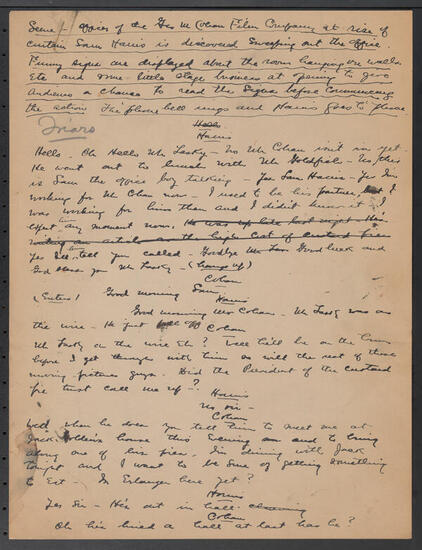 Scene - office of the Geo M Cohan Film Company at rise of
curtain Sam Harris is discovered sweeping out the office.
Funny signs are displayed about the room hanging on walls
Etc and some little stage business at opening to give
Audience a chance to read the signs before commencing
the action The phone bell rings and Harris goes to phone
Hello
Harris
Hello. Oh Hello Mr Lasky - No Mr Cohan isn't in yet
He went out to lunch with Mr Goldfish - No, this
is Sam the office boy talking - Yes Sam Harris - Yes I'm
working for Mr Cohan now - I used to be his partner, but I
was working for him then and I didn't know it. I
expect him any moment now. He was up late last night - He's
writing an article on the high Cost of custard pies
Yes I'll tell him you called - Goodbye Mr Good luck and
God bless you Mr Lasky - (hangs up)
Cohan
(Enters) Good morning Sam
Harris
Good morning Mr Cohan - Mr Lasky was on
the wire - He just off
Cohan
Mr Lasky on the wire Eh? Well he'll be on the
before I get through with him as will the rest of those
moving picture guys. Did the President of the custard
pie trust call me up?
Harris
No sir -
Cohan
Well when he does you tell him to meet me at
Jack house this Evening and to bring
along one of his pies. I'm dining with Jack
tonight and I want to be sure of getting something
to Eat - Is Erlanger here yet?
Harris
Yes Sir - He's out in hall
Cohan
Oh he's hired a hall at last has he?